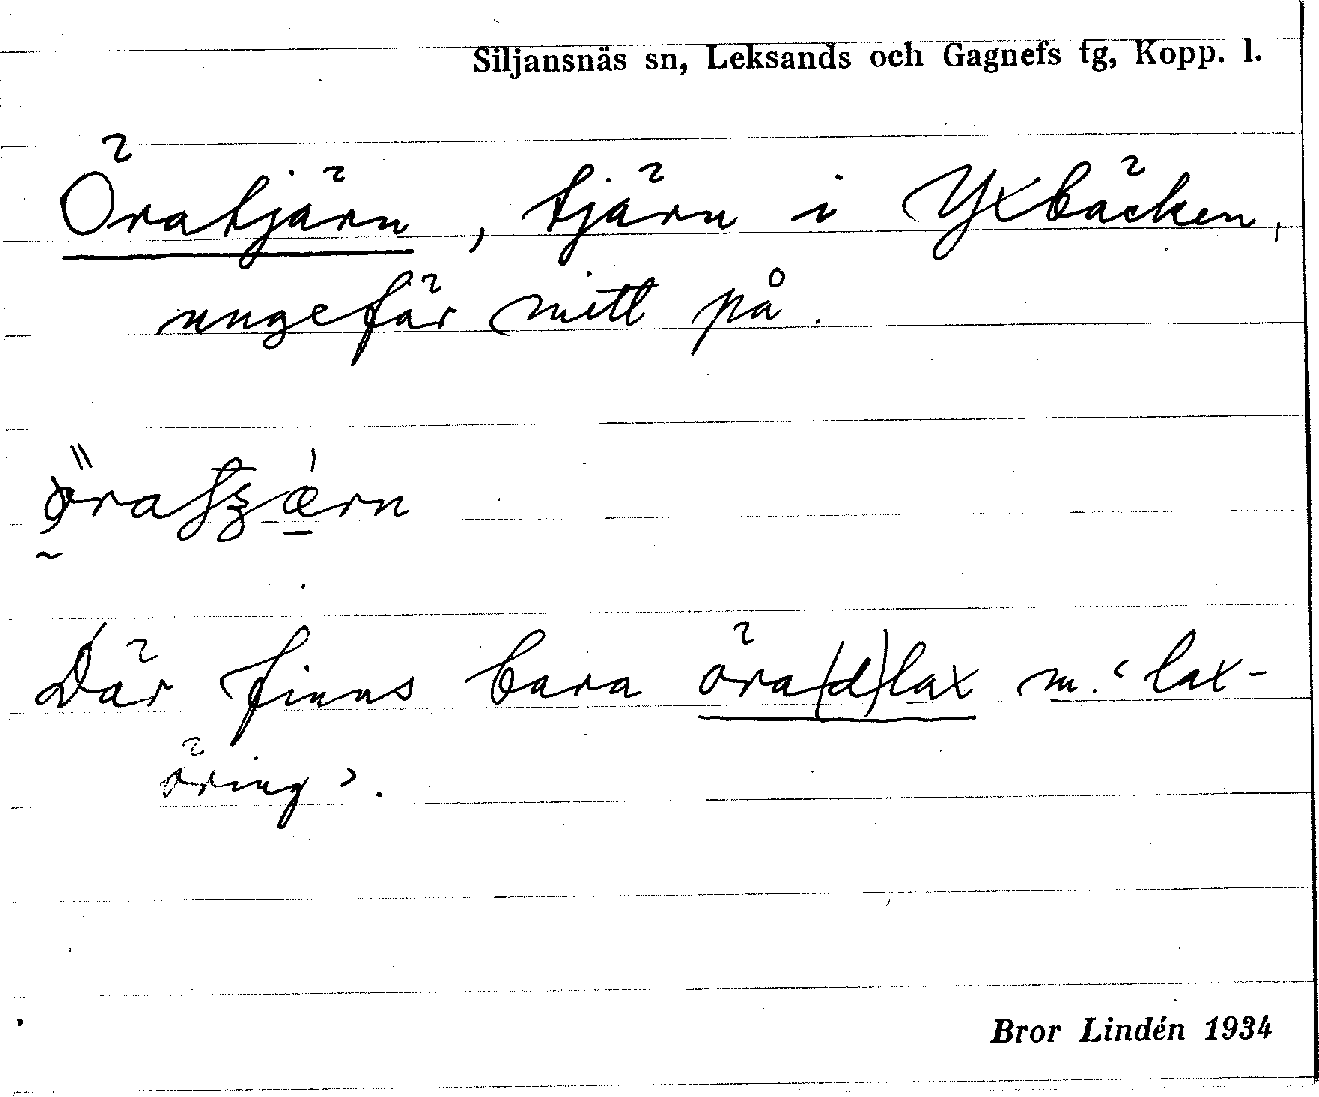 Siljansnäs sn, Leksands och Gagnefs fg, Kopp. l.
Öratjärn, tjärn i Yxbäcken,
ungefär mitt på.
Där finns bara öra(d)lax m. ‘lax-
öring’.
Bror Lindén 1934